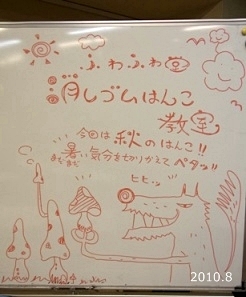 ふわふわ
消しゴムはんこ
教室
今回は秋のはんこ!!
まだまだ
暑い気分を切りかえてペタッ!!
ヒヒッ
2010.8